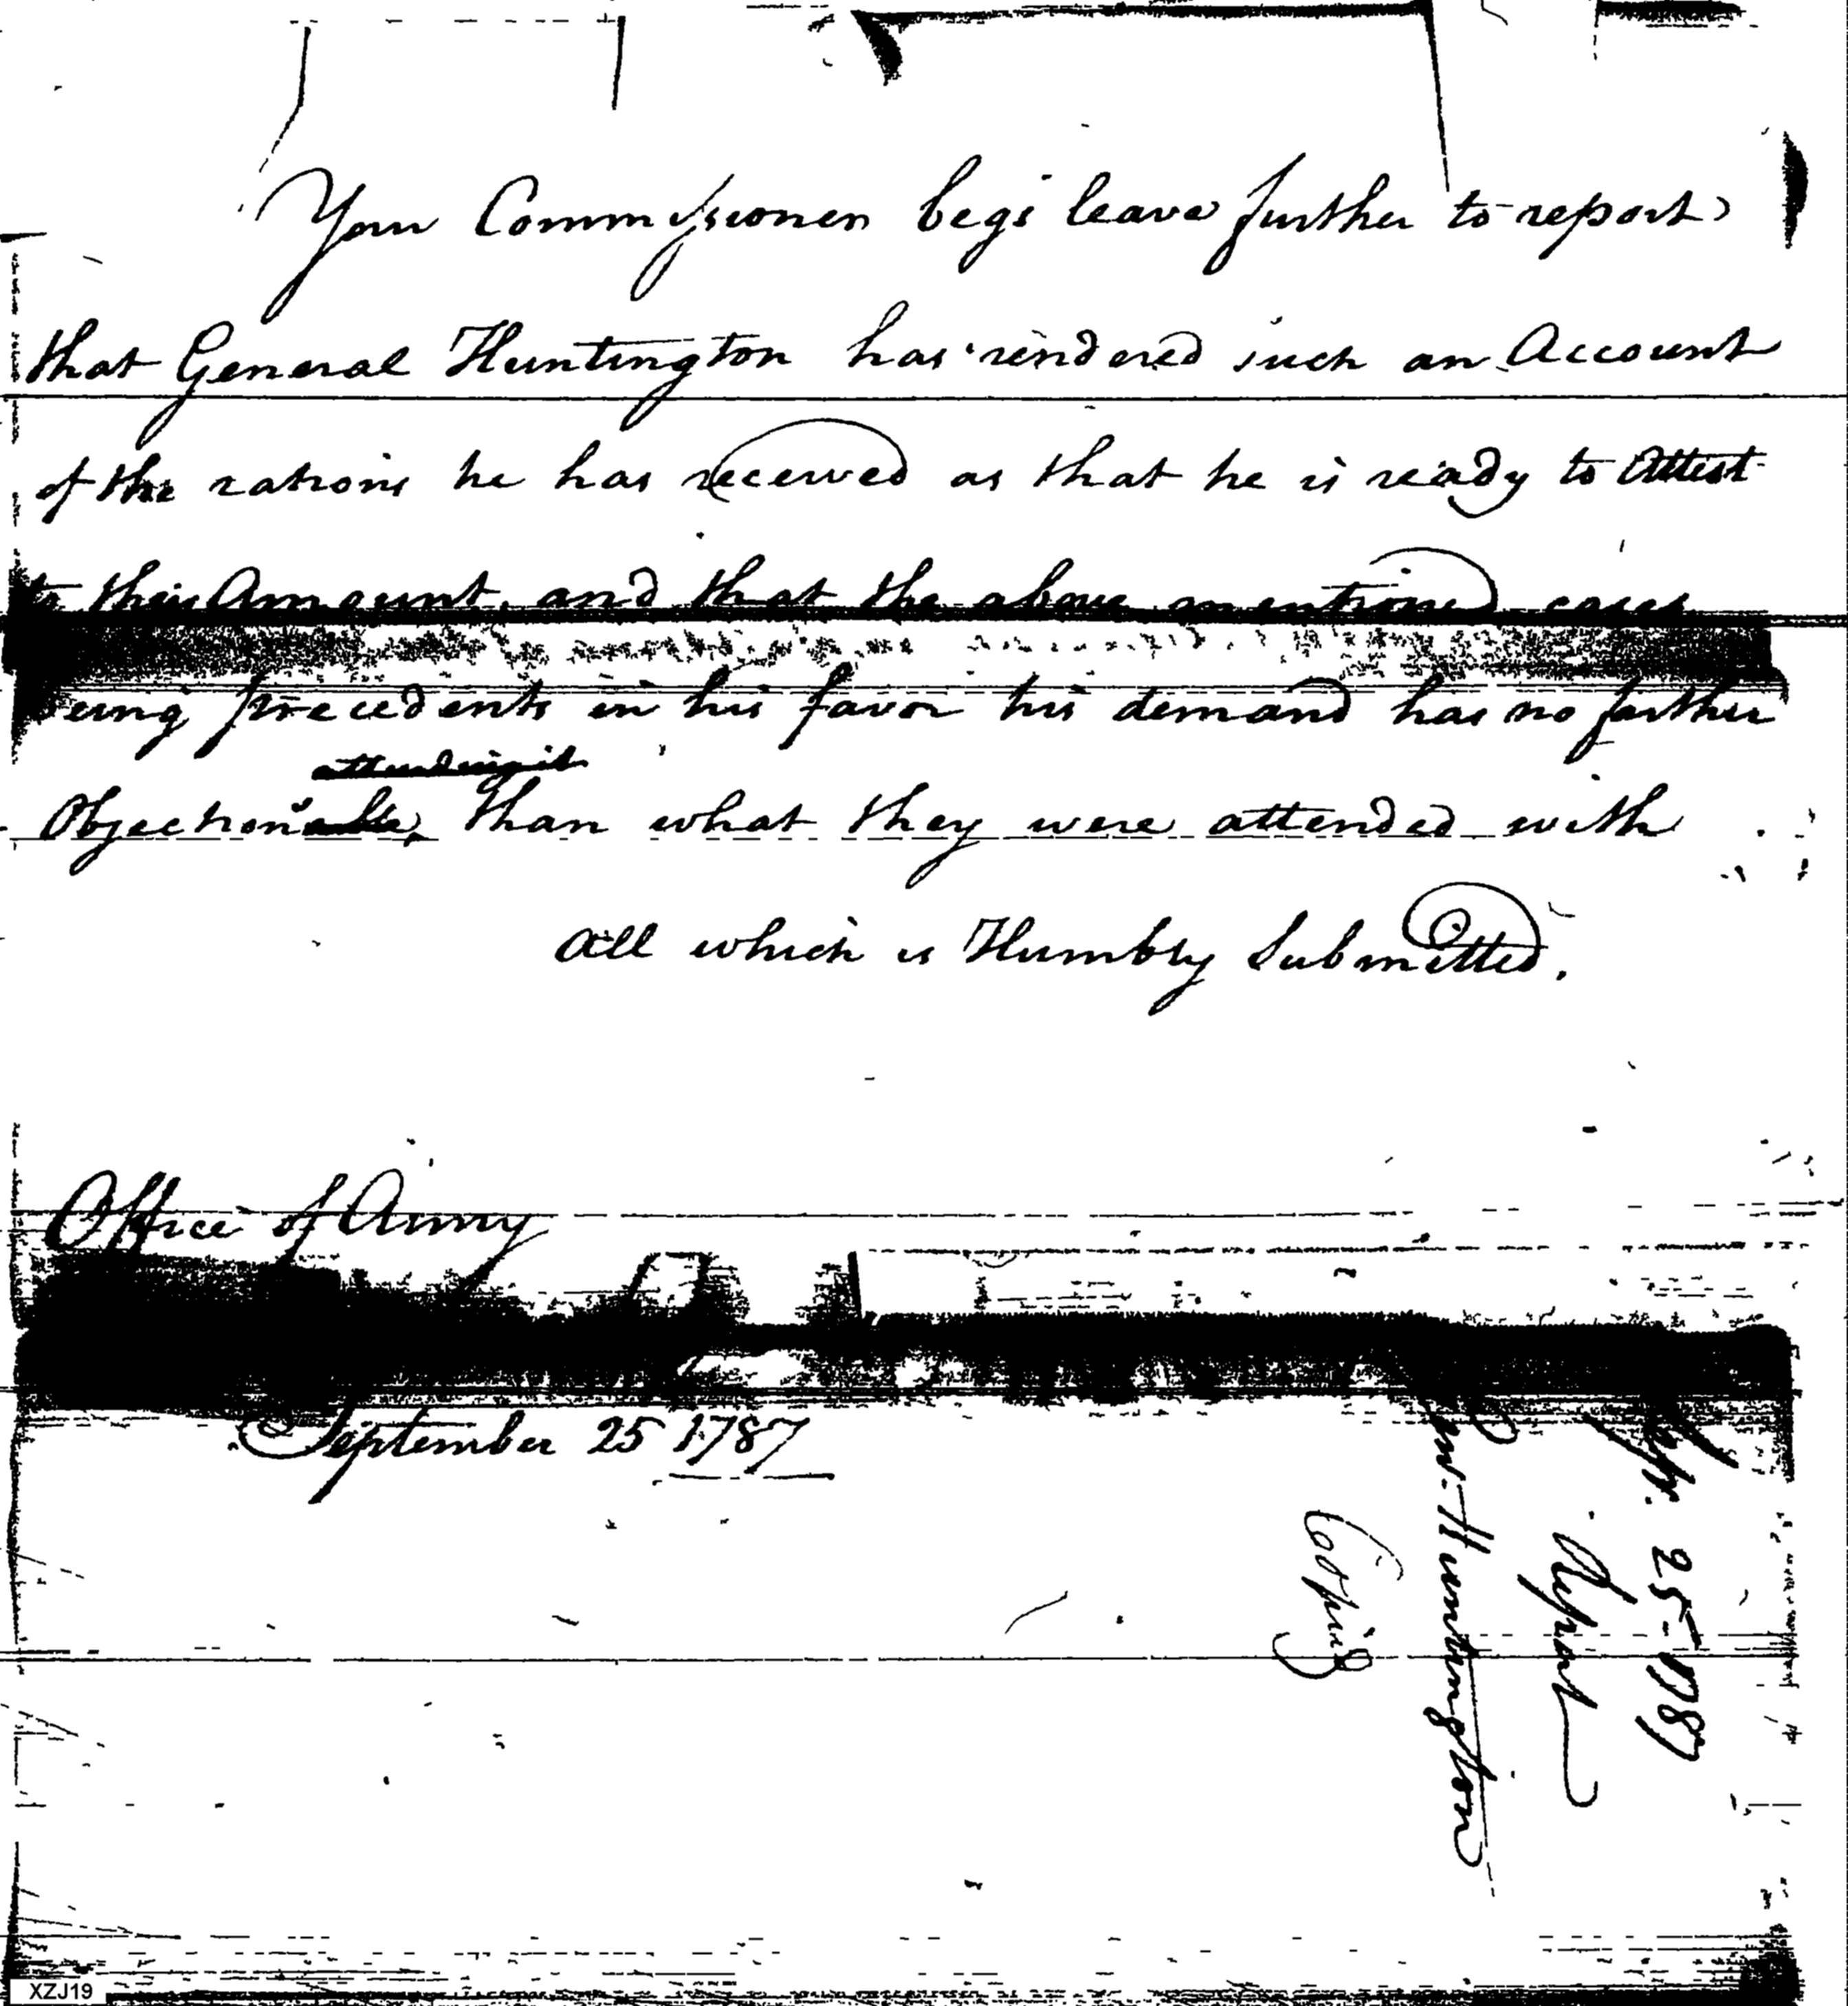 Your Commissioner begs leave further to report
that General Huntington has rendered such an Account
of the rations he has received as that he is ready to Attest
to their Amount, and that the above mentioned cases
being precedents in his favor his demand has no farther
attending it
Objections than what they were attended with
All which is Humbly Submitted.
Office of Army
September 25 1787
25 1787
Report
Huntington
Copied
XZJ19